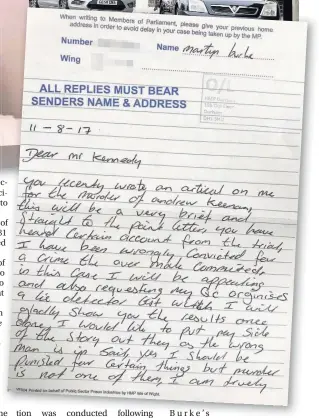 When writing to Members of Parliament, please give your previous home
address in order to avoid delay in your case being taken up by the MP.
Number Name martyn burke
Wing
ALL REPLIES MUST BEAR
SENDERS NAME & ADDRESS
11-8-17
Dear mr Kennedy
you recently wrote an artical on me
for the murder of andrew Keenan,
this will be a very brief and
straight to the point letter, you have
heard certain account from the trial,
I have been wrongly convicted for
a crime the over male committed
in this case I will be appealing
and also requesting my Qc organises
a lie detector test which I will
gladly show you the results once
done, I would like to put my side
of the story out then as the wrong
man is up said, yes I should be
punished for certain things but murder
is not one of them, I am
Printed on behalf of Public Sector Prison Industries by HMP Isle of Wight.
tion was conducted following
Burke's